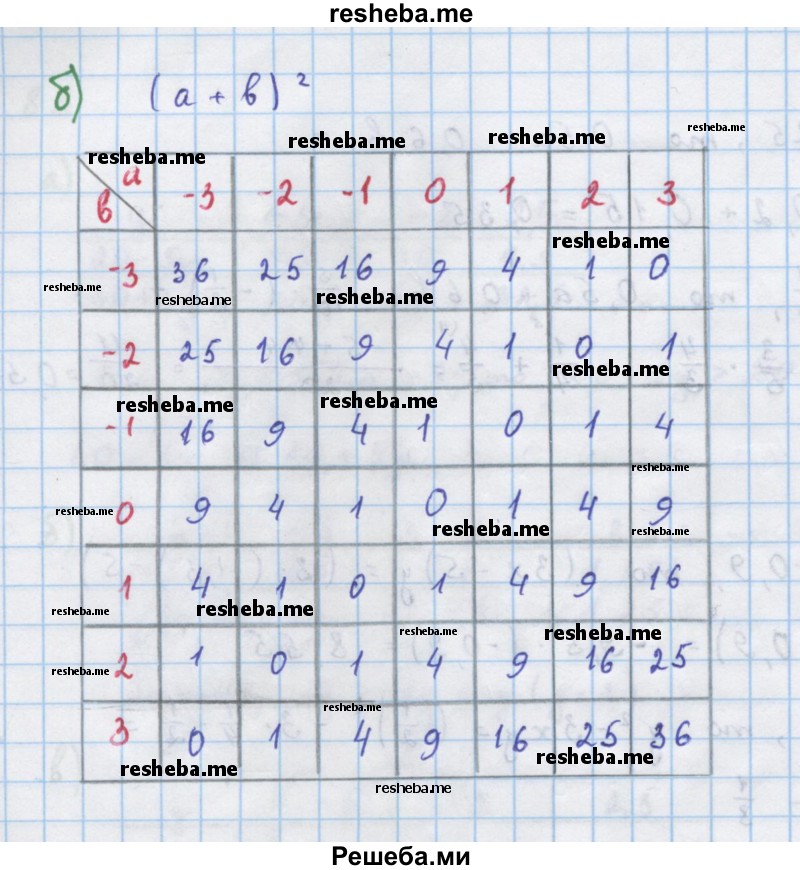 resheba.me
б) (a + b)²
resheba.me resheba.me resheba.me
resheba.me
a
b -3 -2 -1 0 1 2 3
resheba.me
-3 36 25 16 9 4 1 0
resheba.me resheba.me resheba.me
-2 25 16 9 4 1 0 1
resheba.me
resheba.me resheba.me
-1 16 9 4 1 0 1 4
resheba.me
0 9 4 1 0 1 4 9
resheba.me resheba.me resheba.me
1 4 1 0 1 4 9 16
resheba.me resheba.me
resheba.me resheba.me
2 1 0 1 4 9 16 25
resheba.me
resheba.me
3 0 1 4 9 16 25 36
resheba.me resheba.me
resheba.me
Решеба.ми